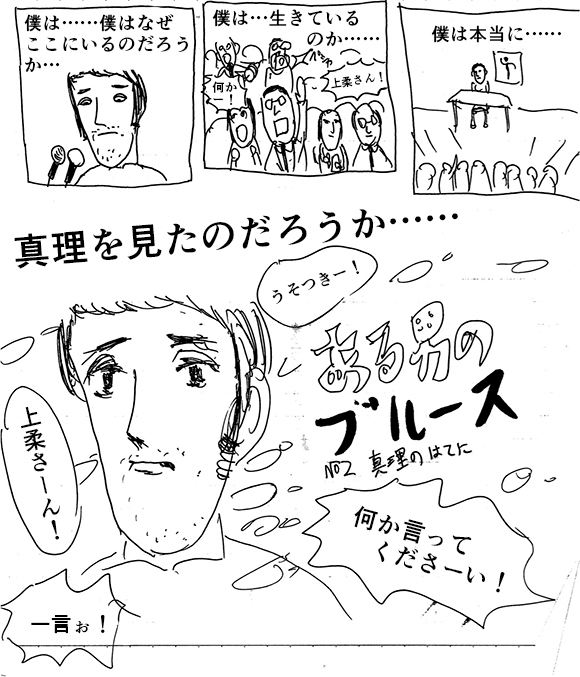 僕は……僕はなぜ
ここにいるのだろう
か…
僕は…生きている
のか……
何か
ー!
上柔さん!
僕は本当に……
真理を見たのだろうか……
うそつきー!
ある男の
ブルース
No2 真理のはてに
上柔さーん!
何か言って
くださーい!
一言ぉ!